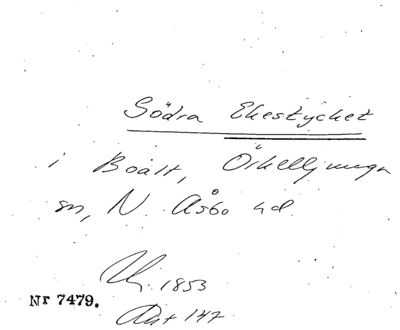 Södra Ekestycket
i Boalt, Örkelljunga
sn, N. Åsbo hd
1853
Nr 7479.
Akt 147